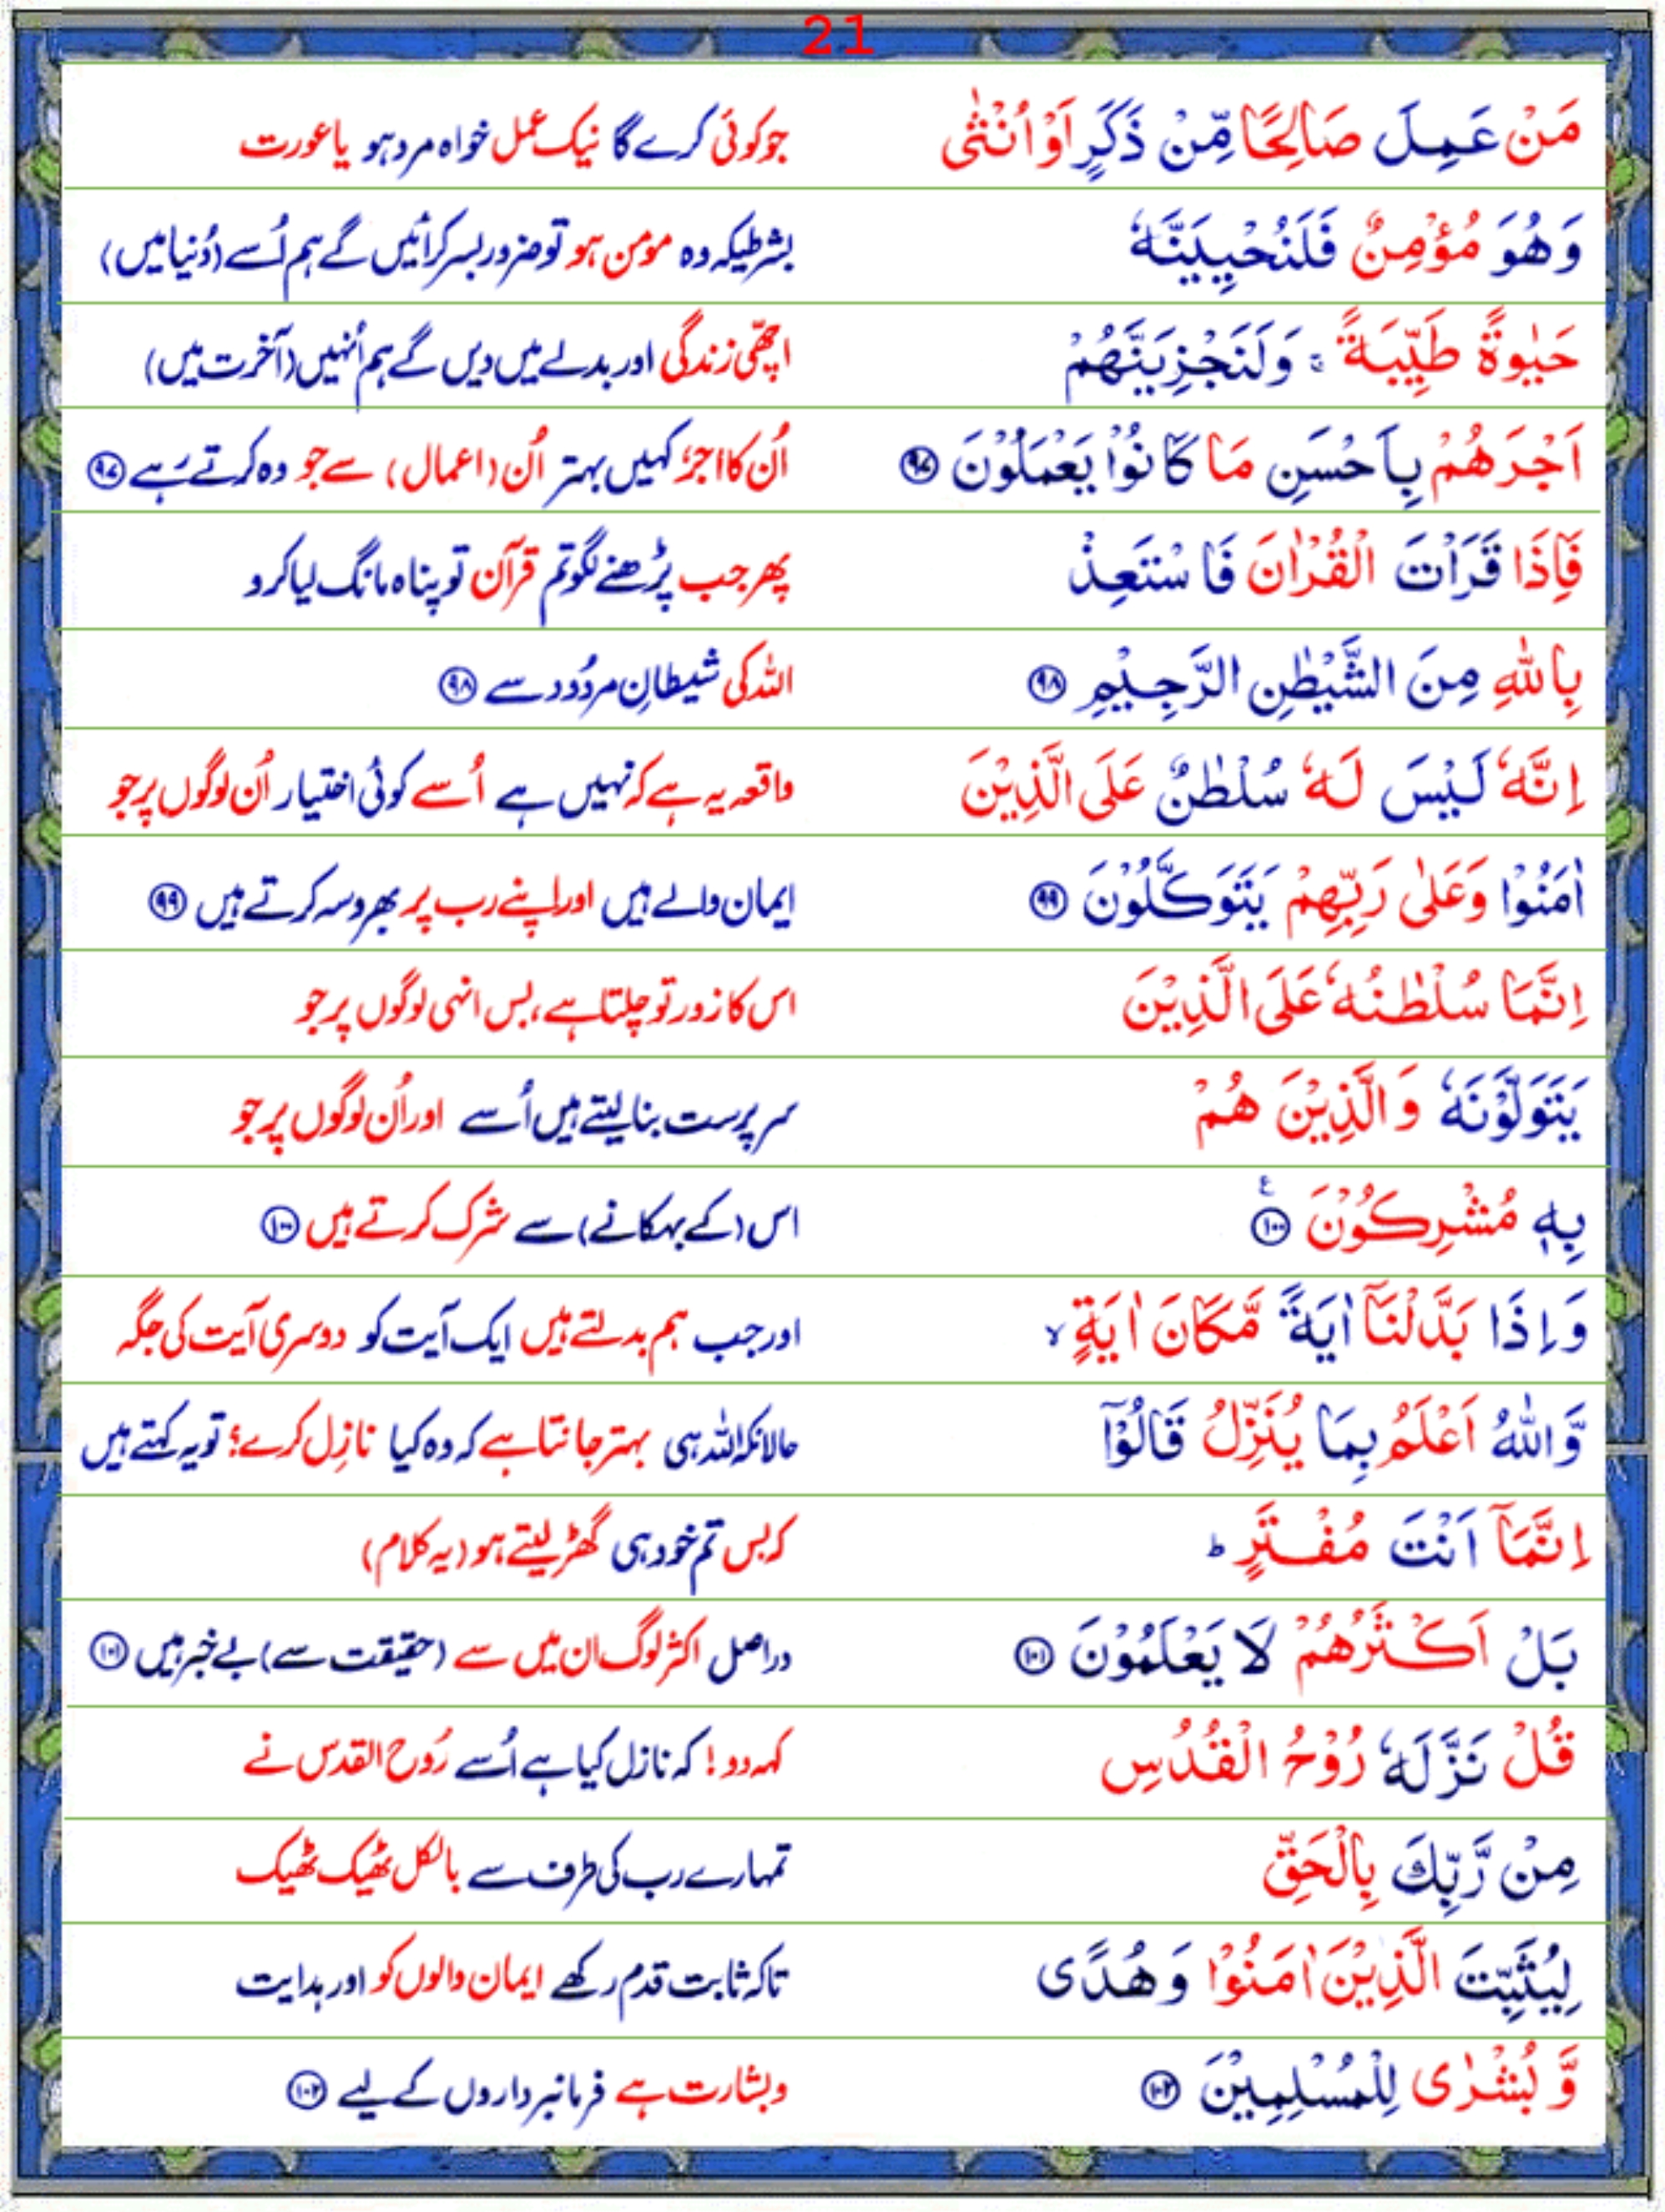 21
مَنْ عَمِلَ صَالِحًا مِّنْ ذَكَرٍ اَوْ اُنْثٰى جو کوئی کرے گا نیک عمل خواہ مرد ہو یا عورت
وَهُوَ مُؤْمِنٌ فَلَنُحْيِيَنَّهٗ بشرطیکہ وہ مومن ہو تو ضرور بسر کرائیں گے ہم اُسے (دُنیا میں)
حَيٰوةً طَيِّبَةً ۚ وَلَنَجْزِيَنَّهُمْ اچھّی زندگی اور بدلے میں دیں گے ہم اُنہیں (آخرت میں)
اَجْرَهُمْ بِاَحْسَنِ مَا كَانُوْا يَعْمَلُوْنَ ﴿۹۷﴾ اُن کا اجر کہیں بہتر اُن (اعمال) سے جو وہ کرتے رہے ﴿۹۷﴾
فَاِذَا قَرَاْتَ الْقُرْاٰنَ فَاسْتَعِذْ پھر جب پڑھنے لگو تم قرآن تو پناہ مانگ لیا کرو
بِاللّٰهِ مِنَ الشَّيْطٰنِ الرَّجِيْمِ ﴿۹۸﴾ اللہ کی شیطانِ مردُود سے ﴿۹۸﴾
اِنَّهٗ لَيْسَ لَهٗ سُلْطٰنٌ عَلَى الَّذِيْنَ واقعہ یہ ہے کہ نہیں ہے اُسے کوئی اختیار اُن لوگوں پر جو
اٰمَنُوْا وَعَلٰى رَبِّهِمْ يَتَوَكَّلُوْنَ ﴿۹۹﴾ ایمان والے ہیں اور اپنے رب پر بھروسہ کرتے ہیں ﴿۹۹﴾
اِنَّمَا سُلْطٰنُهٗ عَلَى الَّذِيْنَ اس کا زور تو چلتا ہے، بس انہی لوگوں پر جو
يَتَوَلَّوْنَهٗ وَالَّذِيْنَ هُمْ سرپرست بنا لیتے ہیں اُسے اور اُن لوگوں پر جو
بِهٖ مُشْرِكُوْنَ ﴿۱۰۰﴾ ع اس (کے بہکانے) سے شرک کرتے ہیں ﴿۱۰۰﴾
وَاِذَا بَدَّلْنَآ اٰيَةً مَّكَانَ اٰيَةٍ ۙ اور جب ہم بدلتے ہیں ایک آیت کو دوسری آیت کی جگہ
وَّاللّٰهُ اَعْلَمُ بِمَا يُنَزِّلُ قَالُوْٓا حالانکہ اللہ ہی بہتر جانتا ہے کہ وہ کیا نازِل کرے؛ تو یہ کہتے ہیں
اِنَّمَآ اَنْتَ مُفْتَرٍ ؕ کہ بس تم خود ہی گھڑ لیتے ہو (یہ کلام)
بَلْ اَكْثَرُهُمْ لَا يَعْلَمُوْنَ ﴿۱۰۱﴾ دراصل اکثر لوگ ان میں سے (حقیقت سے) بے خبر ہیں ﴿۱۰۱﴾
قُلْ نَزَّلَهٗ رُوْحُ الْقُدُسِ کہہ دو! کہ نازل کیا ہے اُسے رُوح القدس نے
مِنْ رَّبِّكَ بِالْحَقِّ تمہارے رب کی طرف سے بالکل ٹھیک ٹھیک
لِيُثَبِّتَ الَّذِيْنَ اٰمَنُوْا وَهُدًى تاکہ ثابت قدم رکھے ایمان والوں کو اور ہدایت
وَّبُشْرٰى لِلْمُسْلِمِيْنَ ﴿۱۰۲﴾ و بشارت ہے فرمانبرداروں کے لیے ﴿۱۰۲﴾